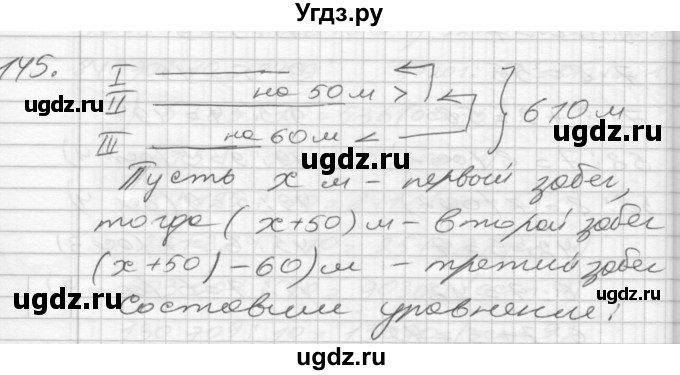 Угдз.ру
145.
I
на 50 м >
II
610 м
на 60 м <
III
Пусть x м – первый забег,
тогда (x+50) м – второй забег
(x+50)-60) м – третий забег
Составим уравнение:
ugdz.ru
ugdz.ru
ugdz.ru
ugdz.ru
ugdz.ru
ugdz.ru
ugdz.ru